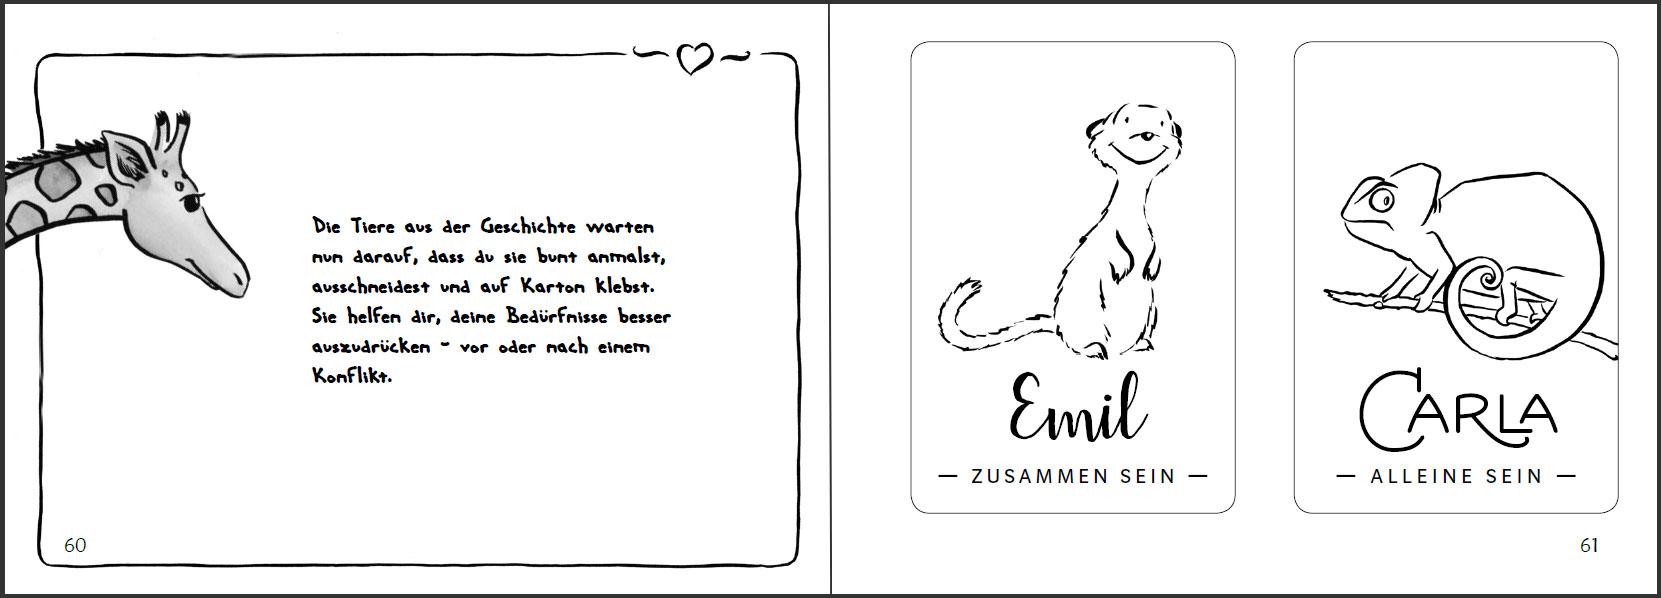 Die Tiere aus der Geschichte warten
nun darauf, dass du sie bunt anmalst,
ausschneidest und auf Karton klebst.
Sie helfen dir, deine Bedürfnisse besser
auszudrücken - vor oder nach einem
Konflikt.
60
Emil
— ZUSAMMEN SEIN —
CARLA
— ALLEINE SEIN —
61